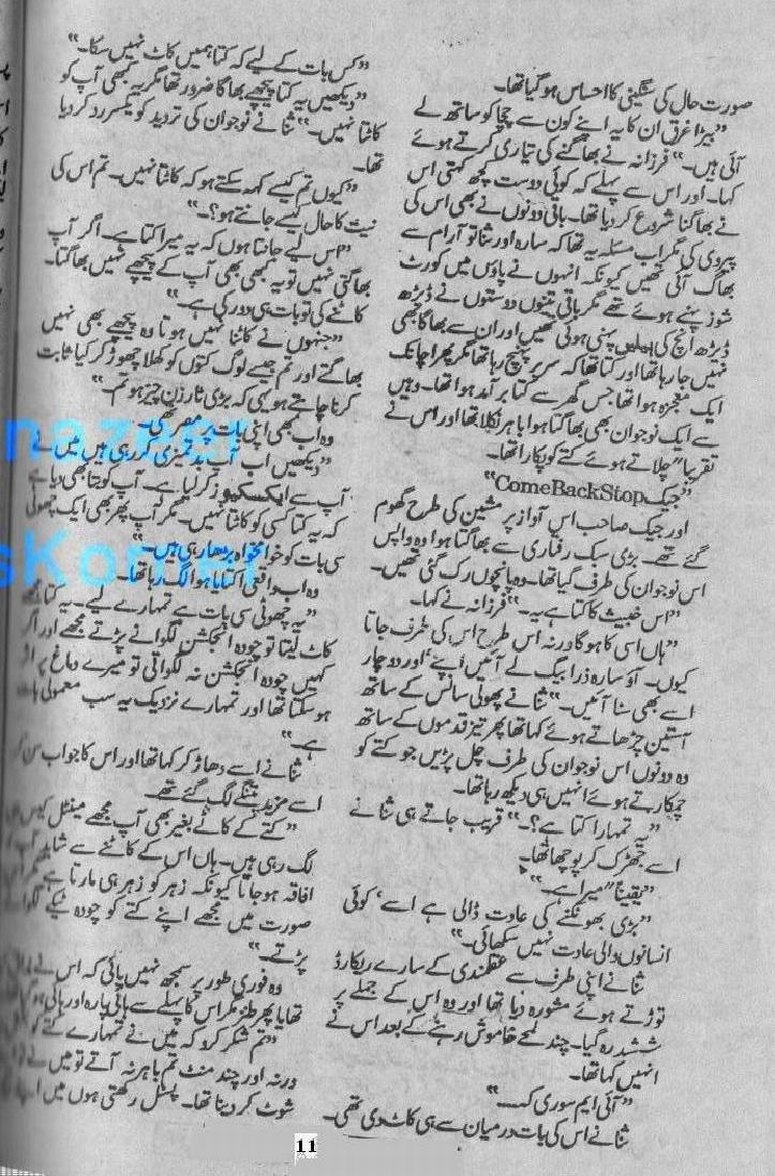 صورت حال کی سنگینی کا احساس ہو گیا تھا۔
”بیڑا غرق ان کا یہ اپنے کون سے چچا کو ساتھ لے
آئی ہیں۔“ فرزانہ نے بھاگنے کی تیاری کرتے ہوئے
کہا۔ اور اس سے پہلے کہ کوئی دوست کچھ کہتی اس
نے بھاگنا شروع کر دیا تھا۔ باقی دونوں نے بھی اس کی
پیروی کی مگر اب مسئلہ یہ تھا کہ سارہ اور ثنا تو آرام سے
بھاگ آئی تھیں کیونکہ انہوں نے پاؤں میں کورٹ
شوز پہنے ہوئے تھے مگر باقی تینوں دوستوں نے ڈیڑھ
ڈیڑھ انچ کی ہیلیں پہنی ہوئی تھیں اور ان سے بھاگا بھی
نہیں جا رہا تھا اور کتا تھا کہ سر پر پہنچ رہا تھا مگر پھر اچانک
ایک معجزہ ہوا تھا جس گھر سے کتا برآمد ہوا تھا۔ وہیں
سے ایک نوجوان بھی بھاگتا ہوا باہر نکلا تھا اور اس نے
تقریباً ”چلاتے ہوئے کتے کو پکارا تھا۔
”جیک ComeBackStop“
اور جیک صاحب اس آواز پر مشین کی طرح گھوم
گئے تھے۔ بڑی سبک رفتاری سے بھاگتا ہوا وہ واپس
اس نوجوان کی طرف گیا تھا۔ وہ پانچوں رک گئی تھیں۔
”اس خبیث کا کتا ہے یہ۔“ فرزانہ نے کہا۔
”ہاں اسی کا ہو گا ورنہ اس طرح اس کی طرف جاتا
کیوں۔ آؤ سارہ ذرا بیگ لے آئیں اپنے‘ اور دو چار
اسے بھی سنا آئیں۔“ ثنا نے پھولی سانس کے ساتھ
آستین چڑھاتے ہوئے کہا تھا پھر تیز قدموں کے ساتھ
وہ دونوں اس نوجوان کی طرف چل پڑیں جو کتے کو
چمکارتے ہوئے انہیں ہی دیکھ رہا تھا۔
”یہ تمہارا کتا ہے؟۔“ قریب جاتے ہی ثنا نے
اسے جھڑک کر پوچھا تھا۔
”یقیناً“ میرا ہے۔“
”بڑی بھونکنے کی عادت ڈالی ہے اسے‘ کوئی
انسانوں والی عادت نہیں سکھائی۔“
ثنا نے اپنی طرف سے عقلمندی کے سارے ریکارڈ
توڑتے ہوئے مشورہ دیا تھا اور وہ اس کے جملے پر
ششدر رہ گیا۔ چند لمحے خاموش رہنے کے بعد اس نے
انہیں کہا تھا۔
”آئی ایم سوری کہ۔۔۔“
ثنا نے اس کی بات درمیان سے ہی کاٹ دی تھی۔
”کس بات کے لیے کہ کتا ہمیں کاٹ نہیں سکا۔“
”دیکھیں یہ کتا پیچھے بھاگا ضرور تھا مگر یہ کبھی آپ کو
کاٹتا نہیں۔“ ثنا نے نوجوان کی تردید کو یکسر رد کر دیا
تھا۔
”کیوں تم کیسے کہہ سکتے ہو کہ کاٹتا نہیں۔ تم اس کی
نیت کا حال کیسے جانتے ہو؟۔“
”اس لیے جانتا ہوں کہ یہ میرا کتا ہے۔ اگر آپ
بھاگتی نہیں تو یہ کبھی بھی آپ کے پیچھے نہیں بھاگتا۔
کاٹنے کی تو بات ہی دور کی ہے۔“
”جنہوں نے کاٹنا نہیں ہوتا وہ پیچھے بھی نہیں
بھاگتے اور تم جیسے لوگ کتوں کو کھلا چھوڑ کر کیا ثابت
کرنا چاہتے ہو یہی کہ بڑی ٹارزن چیز ہو تم۔“
وہ اب بھی اپنی بات پر مصر تھی۔
”دیکھیں اب آپ بدتمیزی کر رہی ہیں میں نے
آپ سے ایکسکیوز کر لیا ہے۔ آپ کو بتا بھی دیا ہے
کہ یہ کتا کسی کو کاٹتا نہیں۔ مگر آپ پھر بھی ایک چھوٹی
سی بات کو خوامخواہ بڑھا رہی ہیں۔“
وہ اب واقعی اکتایا ہوا لگ رہا تھا۔
”یہ چھوٹی سی بات ہے تمہارے لیے۔ یہ کتا مجھے
کاٹ لیتا تو چودہ انجکشن لگوانے پڑتے مجھے اور اگر
کہیں چودہ انجکشن نہ لگواتی تو میرے دماغ پر اثر
ہو سکتا تھا اور تمہارے نزدیک یہ سب معمولی بات
ہے۔“
ثنا نے اسے دھاڑ کر کہا تھا اور اس کا جواب سن کر
اسے مزید پتنگے لگ گئے تھے۔
”کتے کے کاٹے بغیر بھی آپ مجھے مینٹل کیس ہی
لگ رہی ہیں۔ ہاں اس کے کاٹنے سے شاید آپ کو
افاقہ ہو جاتا کیونکہ زہر کو زہر ہی مارتا ہے مگر اس
صورت میں مجھے اپنے کتے کو چودہ ٹیکے لگوانے
پڑتے۔“
وہ فوری طور پر سمجھ نہیں پائی کہ اس نے مذاق کیا
تھا یا پھر طنز مگر اس کا پہلے سے ہائی پارہ اور ہائی ہو گیا تھا
”تم شکر کرو کہ میں نے تمہارے کتے کو
ورنہ اور چند منٹ تم باہر نہ آتے تو میں نے
شوٹ کر دینا تھا۔ پسٹل رکھتی ہوں میں اپنے
11
nazeer
sKorner